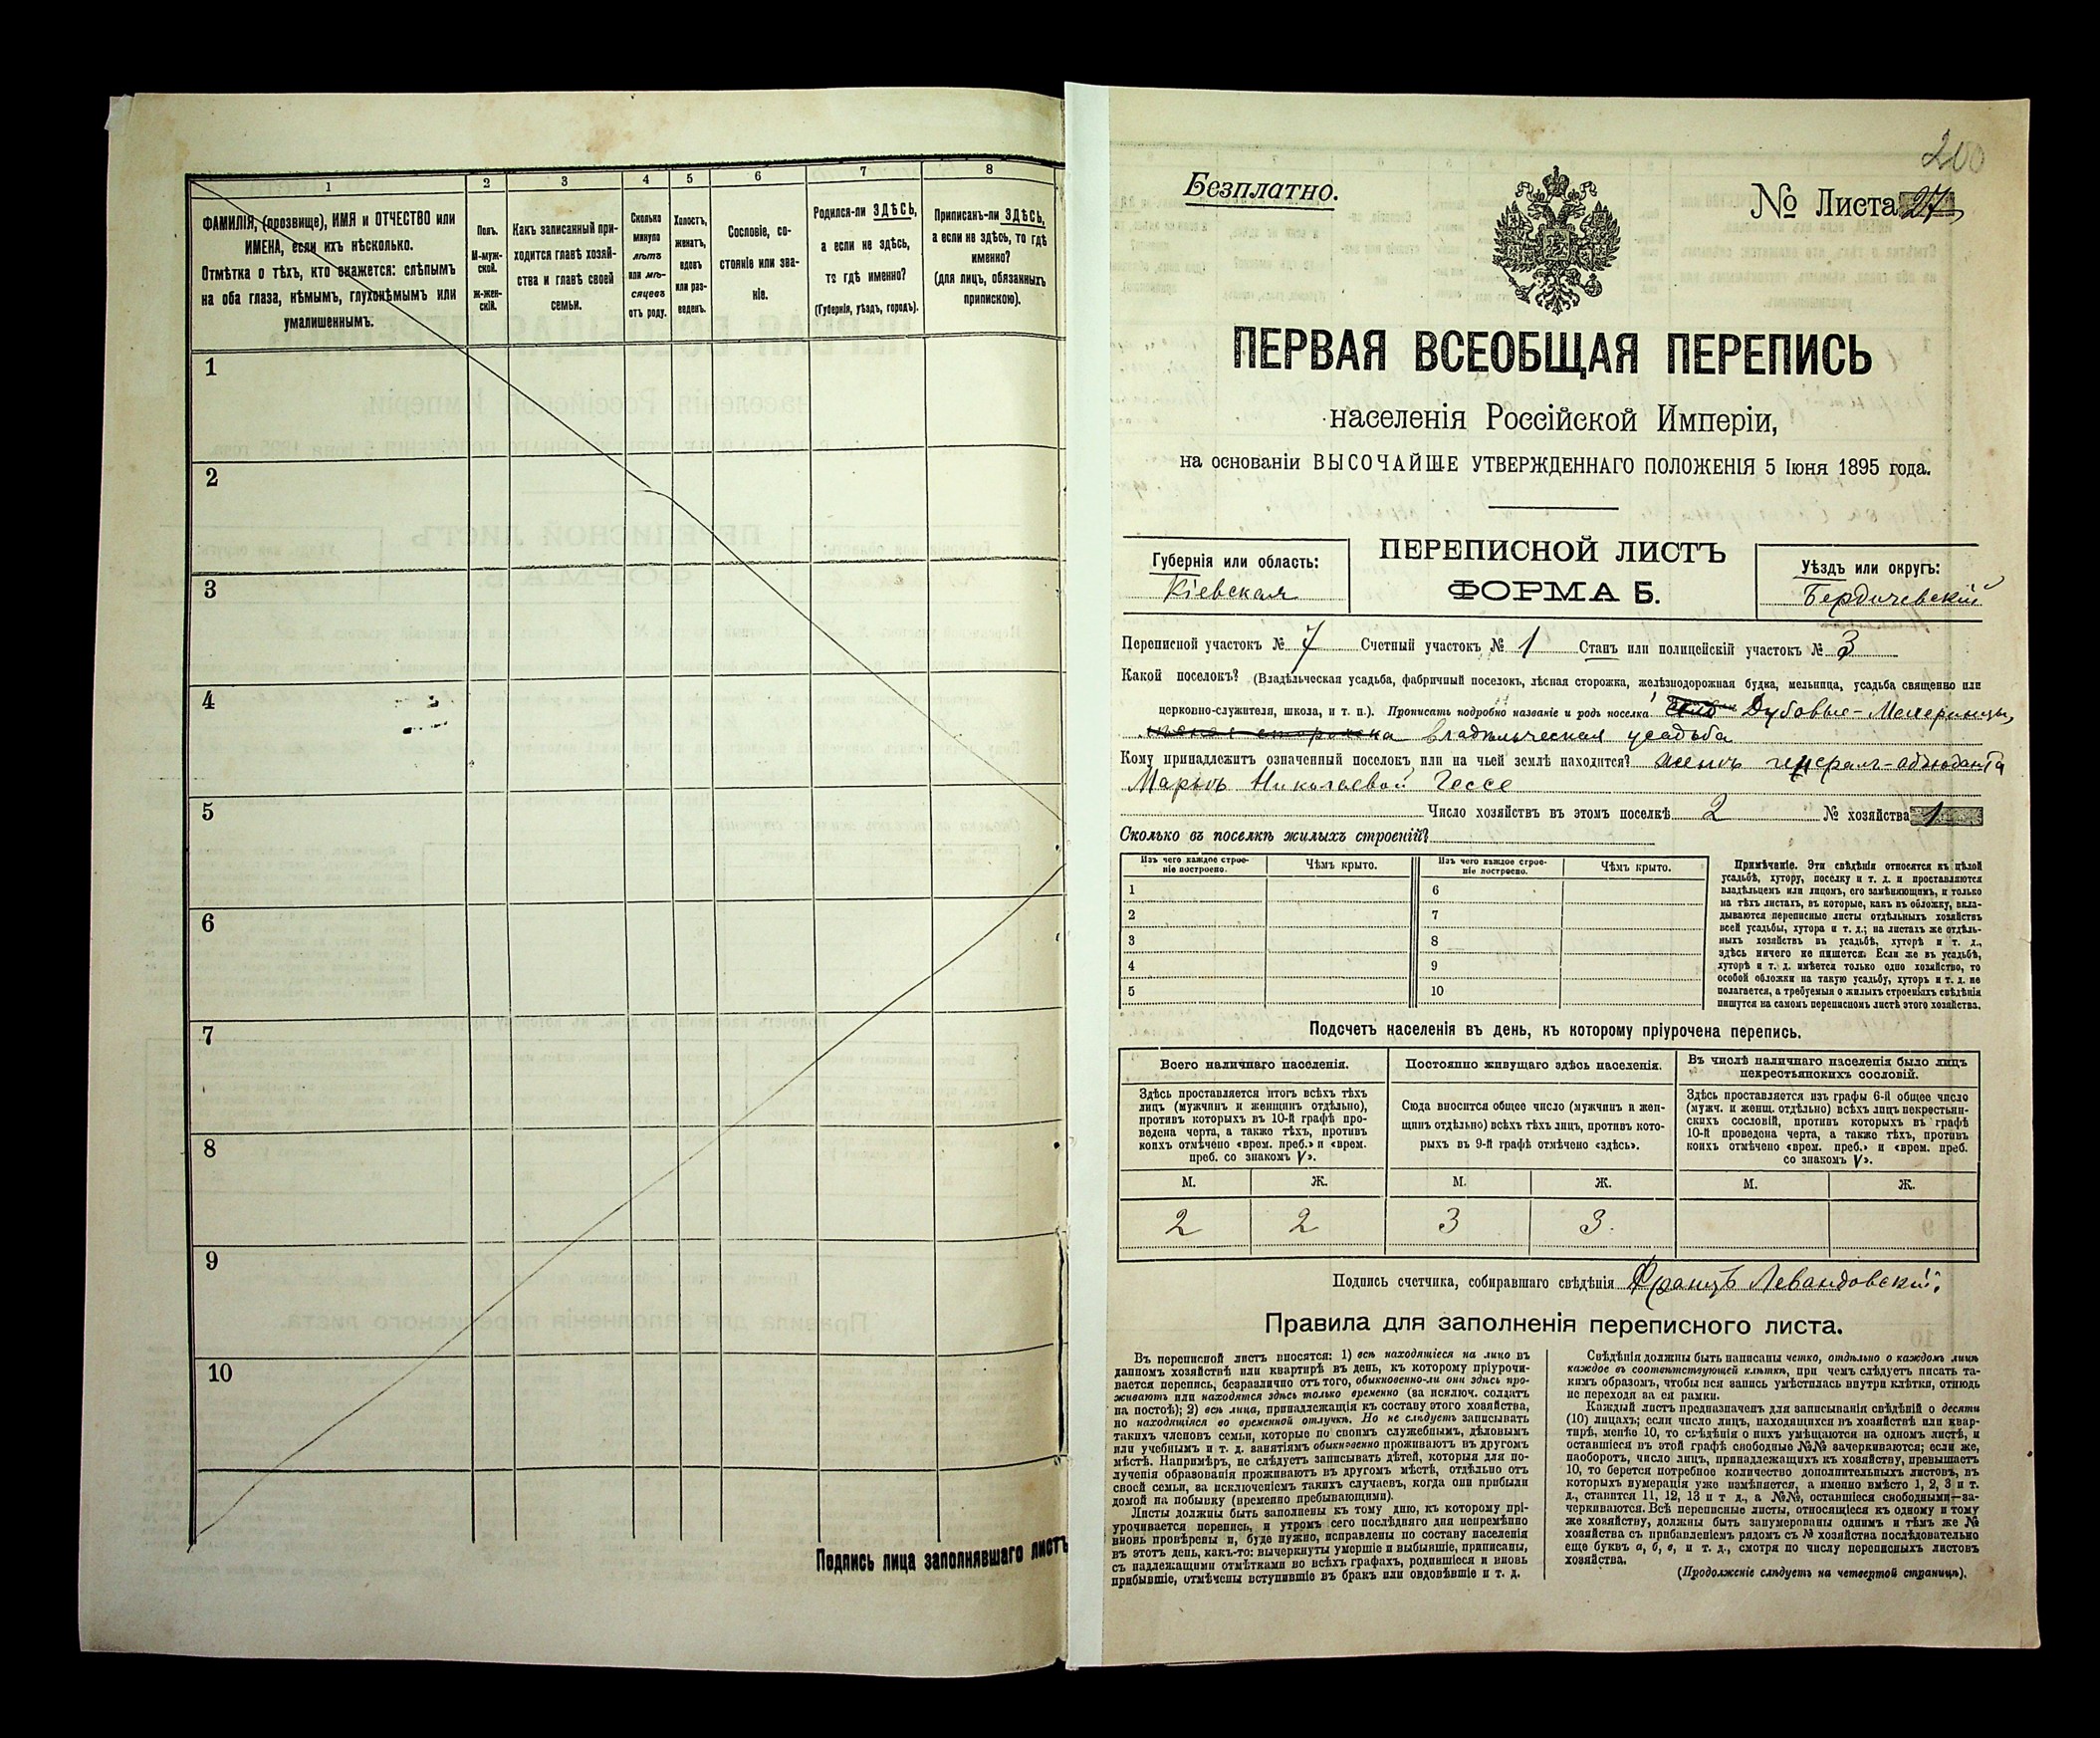 1
2
3
4
5
6
7
8
ФАМИЛІЯ, (прозвище), ИМЯ и ОТЧЕСТВО или
ИМЕНА, если ихъ нѣсколько.
Отмѣтка о тѣхъ, кто окажется: слѣпымъ
на оба глаза, нѣмымъ, глухонѣмымъ или
умалишеннымъ.
Полъ.
М-муж-
ской.
ж-жен-
скій.
Какъ записанный при-
ходится главѣ хозяй-
ства и главѣ своей
семьи.
Сколько
минуло
лѣтъ
или мѣ-
сяцевъ
отъ роду.
Холостъ,
женатъ,
вдовъ
или раз-
веденъ.
Сословіе, со-
стояніе или зва-
ніе.
Родился-ли ЗДѢСЬ,
а если не здѣсь,
то гдѣ именно?
(Губернія, уѣздъ, городъ).
Приписанъ-ли ЗДѢСЬ,
а если не здѣсь, то гдѣ
именно?
(для лицъ, обязанныхъ
припискою).
1
2
3
4
5
6
7
8
9
10
Подпись лица заполнявшаго листъ
200
Безплатно.
№ Листа 27
ПЕРВАЯ ВСЕОБЩАЯ ПЕРЕПИСЬ
населенія Россійской Имперіи,
на основаніи ВЫСОЧАЙШЕ УТВЕРЖДЕННАГО ПОЛОЖЕНІЯ 5 Іюня 1895 года.
Губернія или область:
Кіевская
ПЕРЕПИСНОЙ ЛИСТЪ
ФОРМА Б.
Уѣздъ или округъ:
Бердичевскій
Переписной участокъ № 7 Счетный участокъ № 1 Станъ или полицейскій участокъ № 3
Какой поселокъ? (Владѣльческая усадьба, фабричный поселокъ, лѣсная сторожка, желѣзнодорожная будка, мельница, усадьба священно или
церковно-служителя, школа, и т. п.). Прописать подробно названіе и родъ поселка Дубовые-Мехеринцы,
владѣльческая усадьба
Кому принадлежитъ означенный поселокъ или на чьей землѣ находится? женѣ генерал-адъютанта
Марьѣ Николаевой Гессе
Число хозяйствъ въ этомъ поселкѣ 2 № хозяйства 1
Сколько въ поселкѣ жилыхъ строеній?
Изъ чего каждое строе-
ніе построено.
Чѣмъ крыто.
Изъ чего каждое строе-
ніе построено.
Чѣмъ крыто.
1
2
3
4
5
6
7
8
9
10
Примѣчаніе. Эти свѣдѣнія относятся къ цѣлой
усадьбѣ, хутору, поселку и т. д. и проставляются
владѣльцемъ или лицомъ, его замѣняющимъ, и только
на тѣхъ листахъ, въ которые, какъ въ обложку, вкла-
дываются переписные листы отдѣльныхъ хозяйствъ
всей усадьбы, хутора и т. д.; на листахъ же отдѣль-
ныхъ хозяйствъ въ усадьбѣ, хуторѣ и т. д.,
здѣсь ничего не пишется. Если же въ усадьбѣ,
хуторѣ и т. д. имѣется только одно хозяйство, то
особой обложки на такую усадьбу, хуторъ и т. д. не
полагается, а требуемыя о жилыхъ строеніяхъ свѣдѣнія
пишутся на самомъ переписномъ листѣ этого хозяйства.
Подсчетъ населенія въ день, къ которому пріурочена перепись.
Всего наличнаго населенія.
Постоянно живущаго здѣсь населенія.
Въ числѣ наличнаго населенія было лицъ
некрестьянскихъ сословій.
Здѣсь проставляется итогъ всѣхъ тѣхъ
лицъ (мужчинъ и женщинъ отдѣльно),
противъ которыхъ въ 10-й графѣ про-
ведена черта, а также тѣхъ, противъ
коихъ отмѣчено «врем. преб.» и «врем.
преб. со знакомъ V».
Сюда вносится общее число (мужчинъ и жен-
щинъ отдѣльно) всѣхъ тѣхъ лицъ, противъ кото-
рыхъ въ 9-й графѣ отмѣчено «здѣсь».
Здѣсь проставляется изъ графы 6-й общее число
(мужч. и женщ. отдѣльно) всѣхъ лицъ некрестьян-
скихъ сословій, противъ которыхъ въ графѣ
10-й проведена черта, а также тѣхъ, противъ
коихъ отмѣчено «врем. преб.» и «врем. преб.
со знакомъ V».
М. Ж. М. Ж. М. Ж.
2 2 3 3.
Подпись счетчика, собиравшаго свѣдѣнія Францъ Левандовскій.
Правила для заполненія переписного листа.
Въ переписной листъ вносятся: 1) всѣ находящіеся на лицо въ
данномъ хозяйствѣ или квартирѣ въ день, къ которому пріурочи-
вается перепись, безразлично отъ того, обыкновенно-ли они здѣсь про-
живаютъ или находятся здѣсь только временно (за исключ. солдатъ
на постоѣ); 2) всѣ лица, принадлежащія къ составу этого хозяйства,
но находящіяся во временной отлучкѣ. Но не слѣдуетъ записывать
такихъ членовъ семьи, которые по своимъ служебнымъ, дѣловымъ
или учебнымъ и т. д. занятіямъ обыкновенно проживаютъ въ другомъ
мѣстѣ. Напримѣръ, не слѣдуетъ записывать дѣтей, которыя для по-
лученія образованія проживаютъ въ другомъ мѣстѣ, отдѣльно отъ
своей семьи, за исключеніемъ такихъ случаевъ, когда они прибыли
домой на побывку (временно пребывающими).
Листы должны быть заполнены къ тому дню, къ которому прі-
урочивается перепись, и утромъ сего послѣдняго дня непремѣнно
вновь провѣрены и, буде нужно, исправлены по составу населенія
въ этотъ день, какъ-то: вычеркнуты умершіе и выбывшіе, приписаны,
съ надлежащими отмѣтками во всѣхъ графахъ, родившіеся и вновь
прибывшіе, отмѣчены вступившіе въ бракъ или овдовѣвшіе и т. д.
Свѣдѣнія должны быть написаны четко, отдѣльно о каждомъ лицѣ
каждое въ соотвѣтствующей клѣткѣ, при чемъ слѣдуетъ писать та-
кимъ образомъ, чтобы вся запись умѣстилась внутри клѣтки, отнюдь
не переходя за ея рамки.
Каждый листъ предназначенъ для записыванія свѣдѣній о десяти
(10) лицахъ; если число лицъ, находящихся въ хозяйствѣ или квар-
тирѣ, менѣе 10, то свѣдѣнія о нихъ умѣщаются на одномъ листѣ, и
оставшіеся въ этой графѣ свободные №№ зачеркиваются; если же,
наоборотъ, число лицъ, принадлежащихъ къ хозяйству, превышаетъ
10, то берется потребное количество дополнительныхъ листовъ, въ
которыхъ нумерація уже измѣняется, а именно вмѣсто 1, 2, 3 и т.
д., ставится 11, 12, 13 и т д., а №№, оставшіеся свободными—за-
черкиваются. Всѣ переписные листы, относящіеся къ одному и тому
же хозяйству, должны быть занумерованы однимъ и тѣмъ же №
хозяйства съ прибавленіемъ рядомъ съ № хозяйства послѣдовательно
еще буквъ а, б, в, и т. д., смотря по числу переписныхъ листовъ
хозяйства.
(Продолженіе слѣдуетъ на четвертой страницѣ).